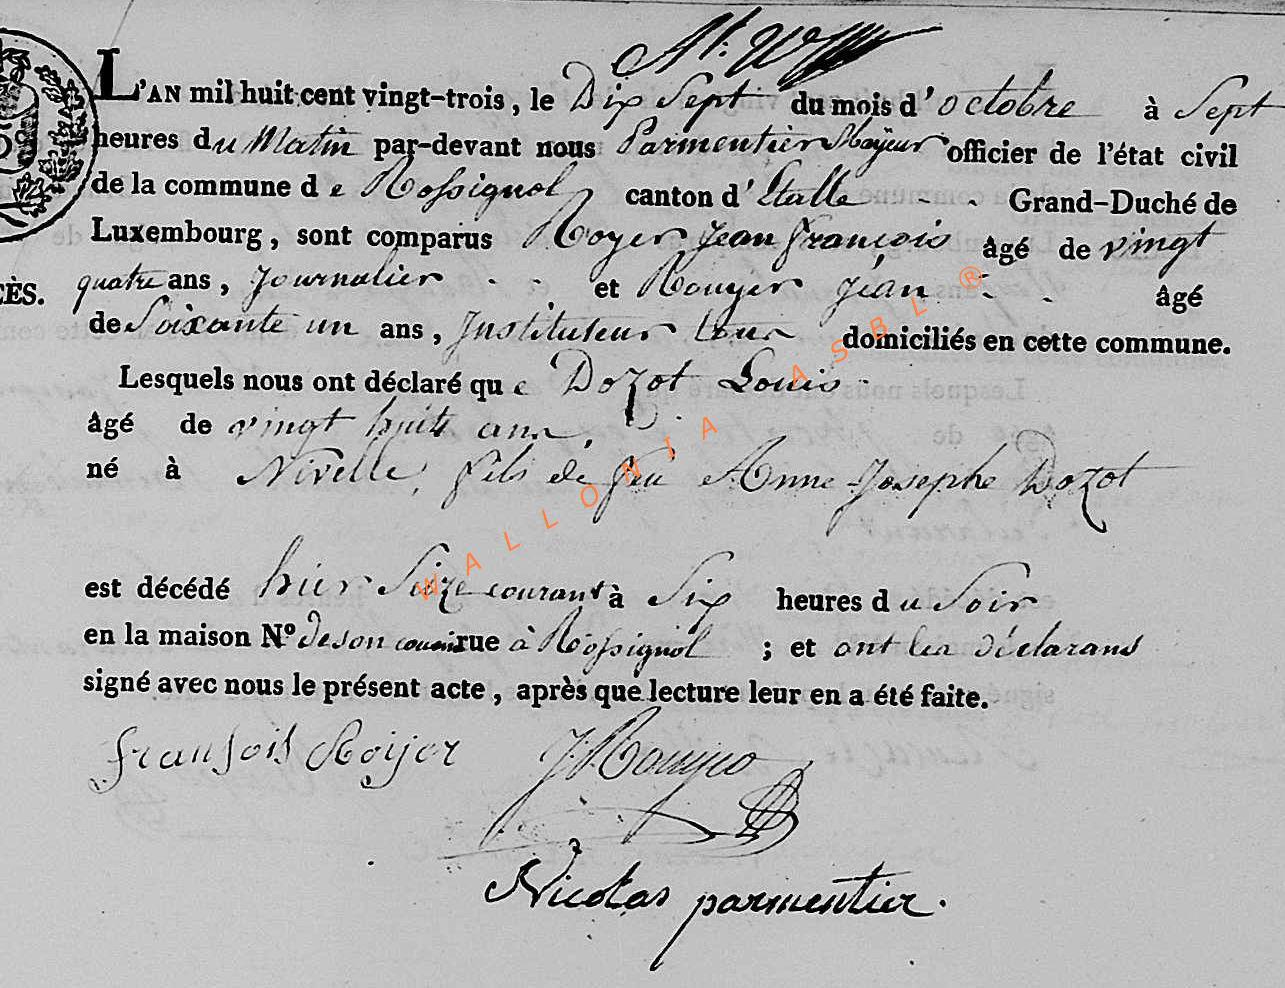 L'AN mil huit cent vingt-trois, le Dix Sept du mois d'octobre à Sept
heures du Matin par-devant nous Parmentier Mayeur officier de l'état civil
de la commune de Rossignol canton d'Etalle Grand-Duché de
Luxembourg, sont comparus Royer Jean François âgé de vingt
quatre ans, Journalier et Rouyer Jean âgé
de Soixante un ans, Instituteur tous domiciliés en cette commune.
CÈS.
Lesquels nous ont déclaré que Dozot Louis
âgé de vingt huit ans,
né à Nivelle, fils de feu Anne Josephe Dozot
est décédé hier Seize courant à Six heures du Soir
en la maison N° de son cousin rue à Rossignol ; et ont les déclarans
signé avec nous le présent acte, après que lecture leur en a été faite.
fransois Roijer J Rouyer
Nicolas parmentier.
WALLONIA ASBL ®